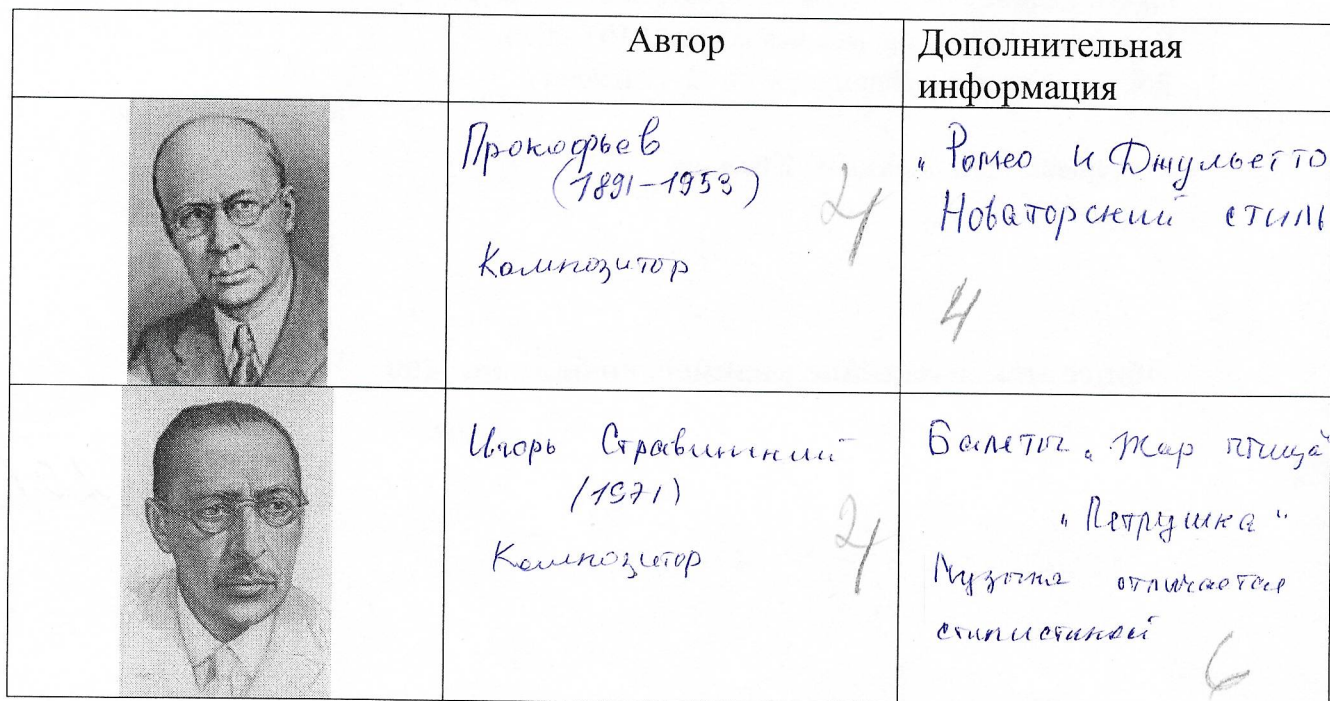 Автор
Дополнительная
информация
Прокофьев
(1891-1953)
Композитор
2
„Ромео и Джульетта
Новаторский стиль
4
Игорь Стравинский
(1971)
Композитор
2
Балеты „Жар птица"
„Петрушка"
Музыка отличается
стилистикой
6